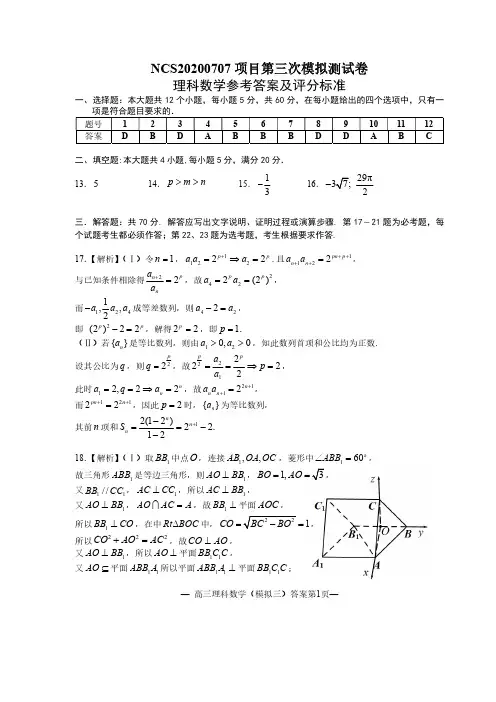 NCS20200707项目第三次模拟测试卷
理科数学参考答案及评分标准
一、选择题：本大题共 12 个小题，每小题 5 分，共 60 分，在每小题给出的四个选项中，只有一
项是符合题目要求的．
题号 1 2 3 4 5 6 7 8 9 10 11 12
答案 D B D A B B B D D A B C
二、填空题:本大题共 4 小题,每小题 5 分，满分 20 分．
13. 5 14. p > m > n 15. −1/3 16. 29π/2
三．解答题：共 70 分. 解答应写出文字说明、证明过程或演算步骤. 第 17－21 题为必考题，每
个试题考生都必须作答；第 22、23 题为选考题，考生根据要求作答.
17.【解析】(Ⅰ) 令 n = 1，a₁a₂ = 2^(p+1) ⇒ a₂ = 2^p．且 a_(n+1)a_(n+2) = 2^(pn+p+1)，
与已知条件相除得 a_(n+2)/a_n = 2^p，故 a₄ = 2^p a₂ = (2^p)²，
而 −a₁, (1/2)a₂, a₄ 成等差数列，则 a₄ − 2 = a₂，
即 (2^p)² − 2 = 2^p，解得 2^p = 2，即 p = 1.
(Ⅱ)若{a_n}是等比数列，则由 a₁ > 0, a₂ > 0，知此数列首项和公比均为正数.
设其公比为 q，则 q = 2^(p/2)，故 2^(p/2) = a₂/a₁ = 2^p/2 ⇒ p = 2，
此时 a₁ = 2, q = 2 ⇒ a_n = 2^n，故 a_n a_(n+1) = 2^(2n+1)，
而 2^(pn+1) = 2^(2n+1)，因此 p = 2 时，{a_n}为等比数列，
其前 n 项和 S_n = 2(1−2^n)/(1−2) = 2^(n+1) − 2.
18.【解析】(Ⅰ)取 BB₁ 中点 O，连接 AB₁, OA, OC，菱形中 ∠ABB₁ = 60°，
故三角形 ABB₁ 是等边三角形，则 AO ⊥ BB₁，BO = 1, AO = √3，
又 BB₁ // CC₁，AC ⊥ CC₁，所以 AC ⊥ BB₁，
又 AO ⊥ BB₁，AO ∩ AC = A，故 BB₁ ⊥ 平面 AOC，
所以 BB₁ ⊥ CO，在中 Rt∆BOC 中，CO = √(BC² − BO²) = 1，
所以 CO² + AO² = AC²，故 CO ⊥ AO，
又 AO ⊥ BB₁，所以 AO ⊥ 平面 BB₁C₁C，
又 AO ⊆ 平面 ABB₁A₁ 所以平面 ABB₁A₁ ⊥ 平面 BB₁C₁C；
z
C₁
C
B₁
O
B
y
A₁
A
x
— 高三理科数学（模拟三）答案第1页—